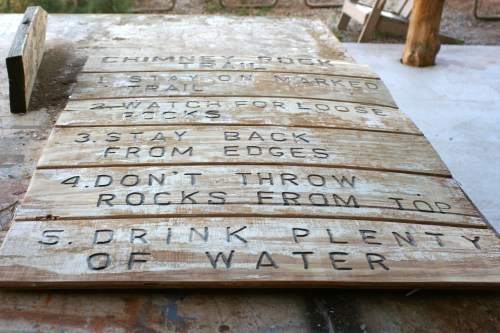 CHIMNEY ROCK
TRAIL
1. STAY ON MARKED
TRAIL
2. WATCH FOR LOOSE
ROCKS
3. STAY BACK
FROM EDGES
4. DON'T THROW
ROCKS FROM TOP
5. DRINK PLENTY
OF WATER